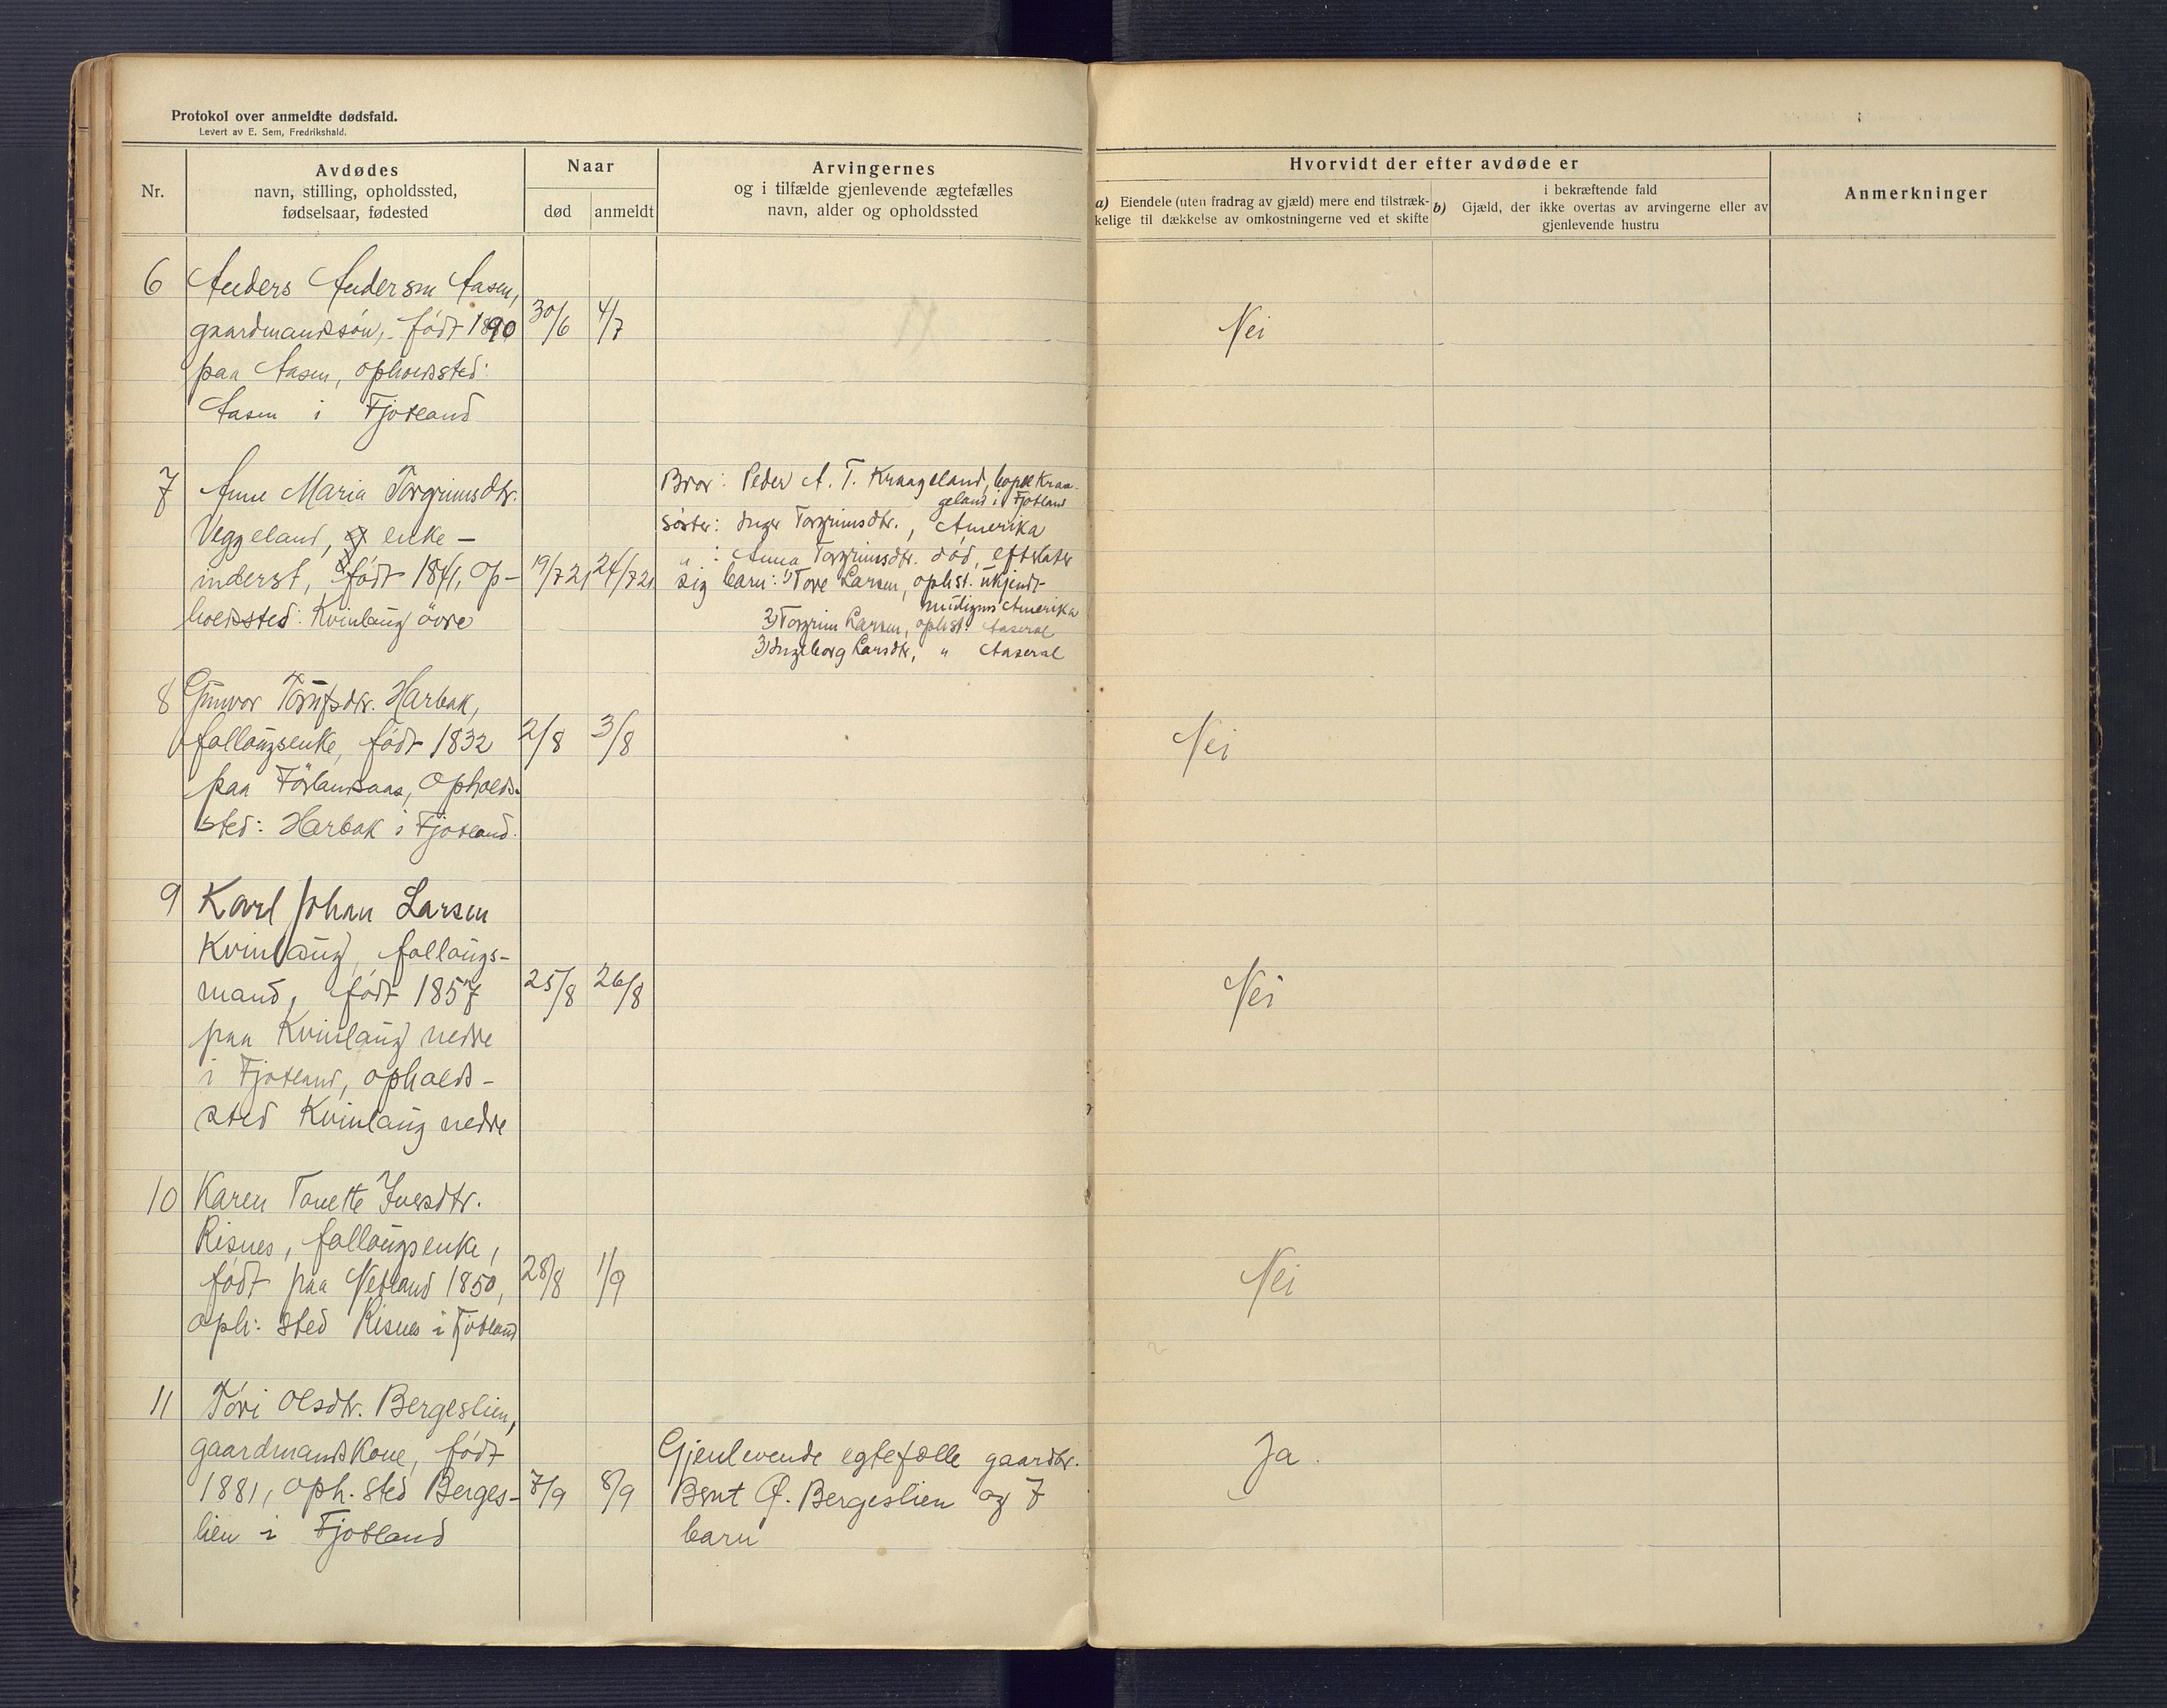 Protokol over anmeldte dødsfald.
Levert av E. Sem, Fredrikshald.
Nr.
Avdødes
navn, stilling, opholdssted,
fødselsaar, fødested
Naar
død
anmeldt
Arvingernes
og i tilfælde gjenlevende ægtefælles
navn, alder og opholdssted
Hvorvidt der efter avdøde er
a) Eiendele (uten fradrag av gjæld) mere end tilstræk-
kelige til dækkelse av omkostningerne ved et skifte
b)
i bekræftende fald
Gjæld, der ikke overtas av arvingerne eller av
gjenlevende hustru
Anmerkninger
6
Anders Andersen Aasen,
gaardmandssøn, født 1890
paa Aasen, opholdssted:
Aasen i Fjotland
30/6
4/7
Nei
7
Anne Maria Torgrimsdtr.
Veggeland, enke –
inderst, født 1841, op-
holdssted: Kvinlaug övre
19/7 21
24/7 21
Bror: Peder A. T. Kraageland, Kraa-
geland i Fjotland
Søster: Inger Torgrimsdtr., Amerika
" : Anna Torgrimsdtr. død, efterlater
sig barn: 1) Tore Larsen, ophst. ukjendt
Amerika
2) Torgrim Larsen, ophst. Aaseral
3) Ingeborg Larsdtr, " Aaseral
8
Gunvor Harbak,
follaugsenke, født 1832
paa Förlandsaas, Opholds-
sted: Harbak i Fjotland.
2/8
3/8
Nei
9
Karl Johan Larsen
Kvinlaug, follaugs-
mand, født 1857
paa Kvinlaug nedre
i Fjotland, opholds-
sted Kvinlaug nedre
25/8
26/8
Nei
10
Karen Tonette Iversdtr.
Risnes, follaugsenke,
født paa Netland 1850,
oph: sted Risnes i Fjotland
28/8
1/9
Nei
11
Tóri Olsdtr. Bergeslien,
gaardmandskone, født
1881, oph. sted Berges-
lien i Fjotland
7/9
8/9
Gjenlevende egtefælle gaardbr.
Bent O. Bergeslien og 7
barn
Ja.